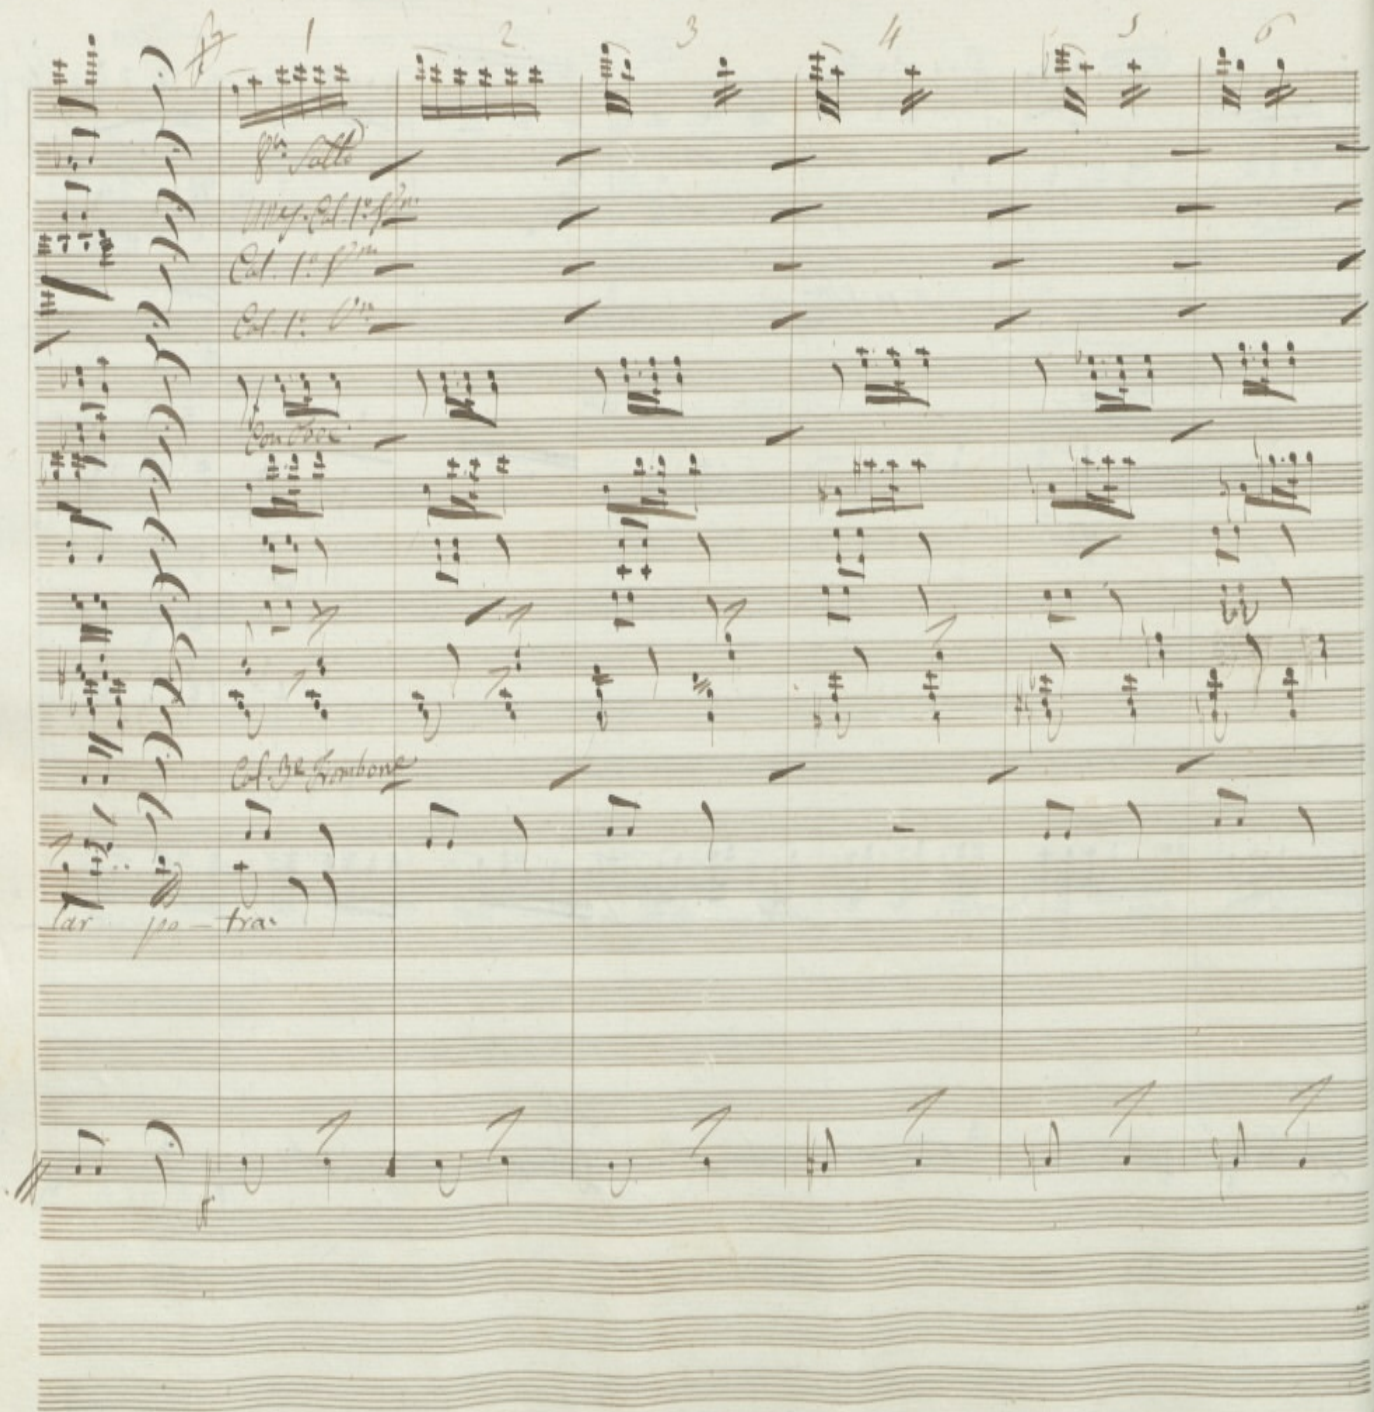 1 2 3 4 5 6
8va Sotto
Col 1º
Col. 1º
Col. 1º Vno
Con Oboe
Col. 3º Trombone
lar po - tra.